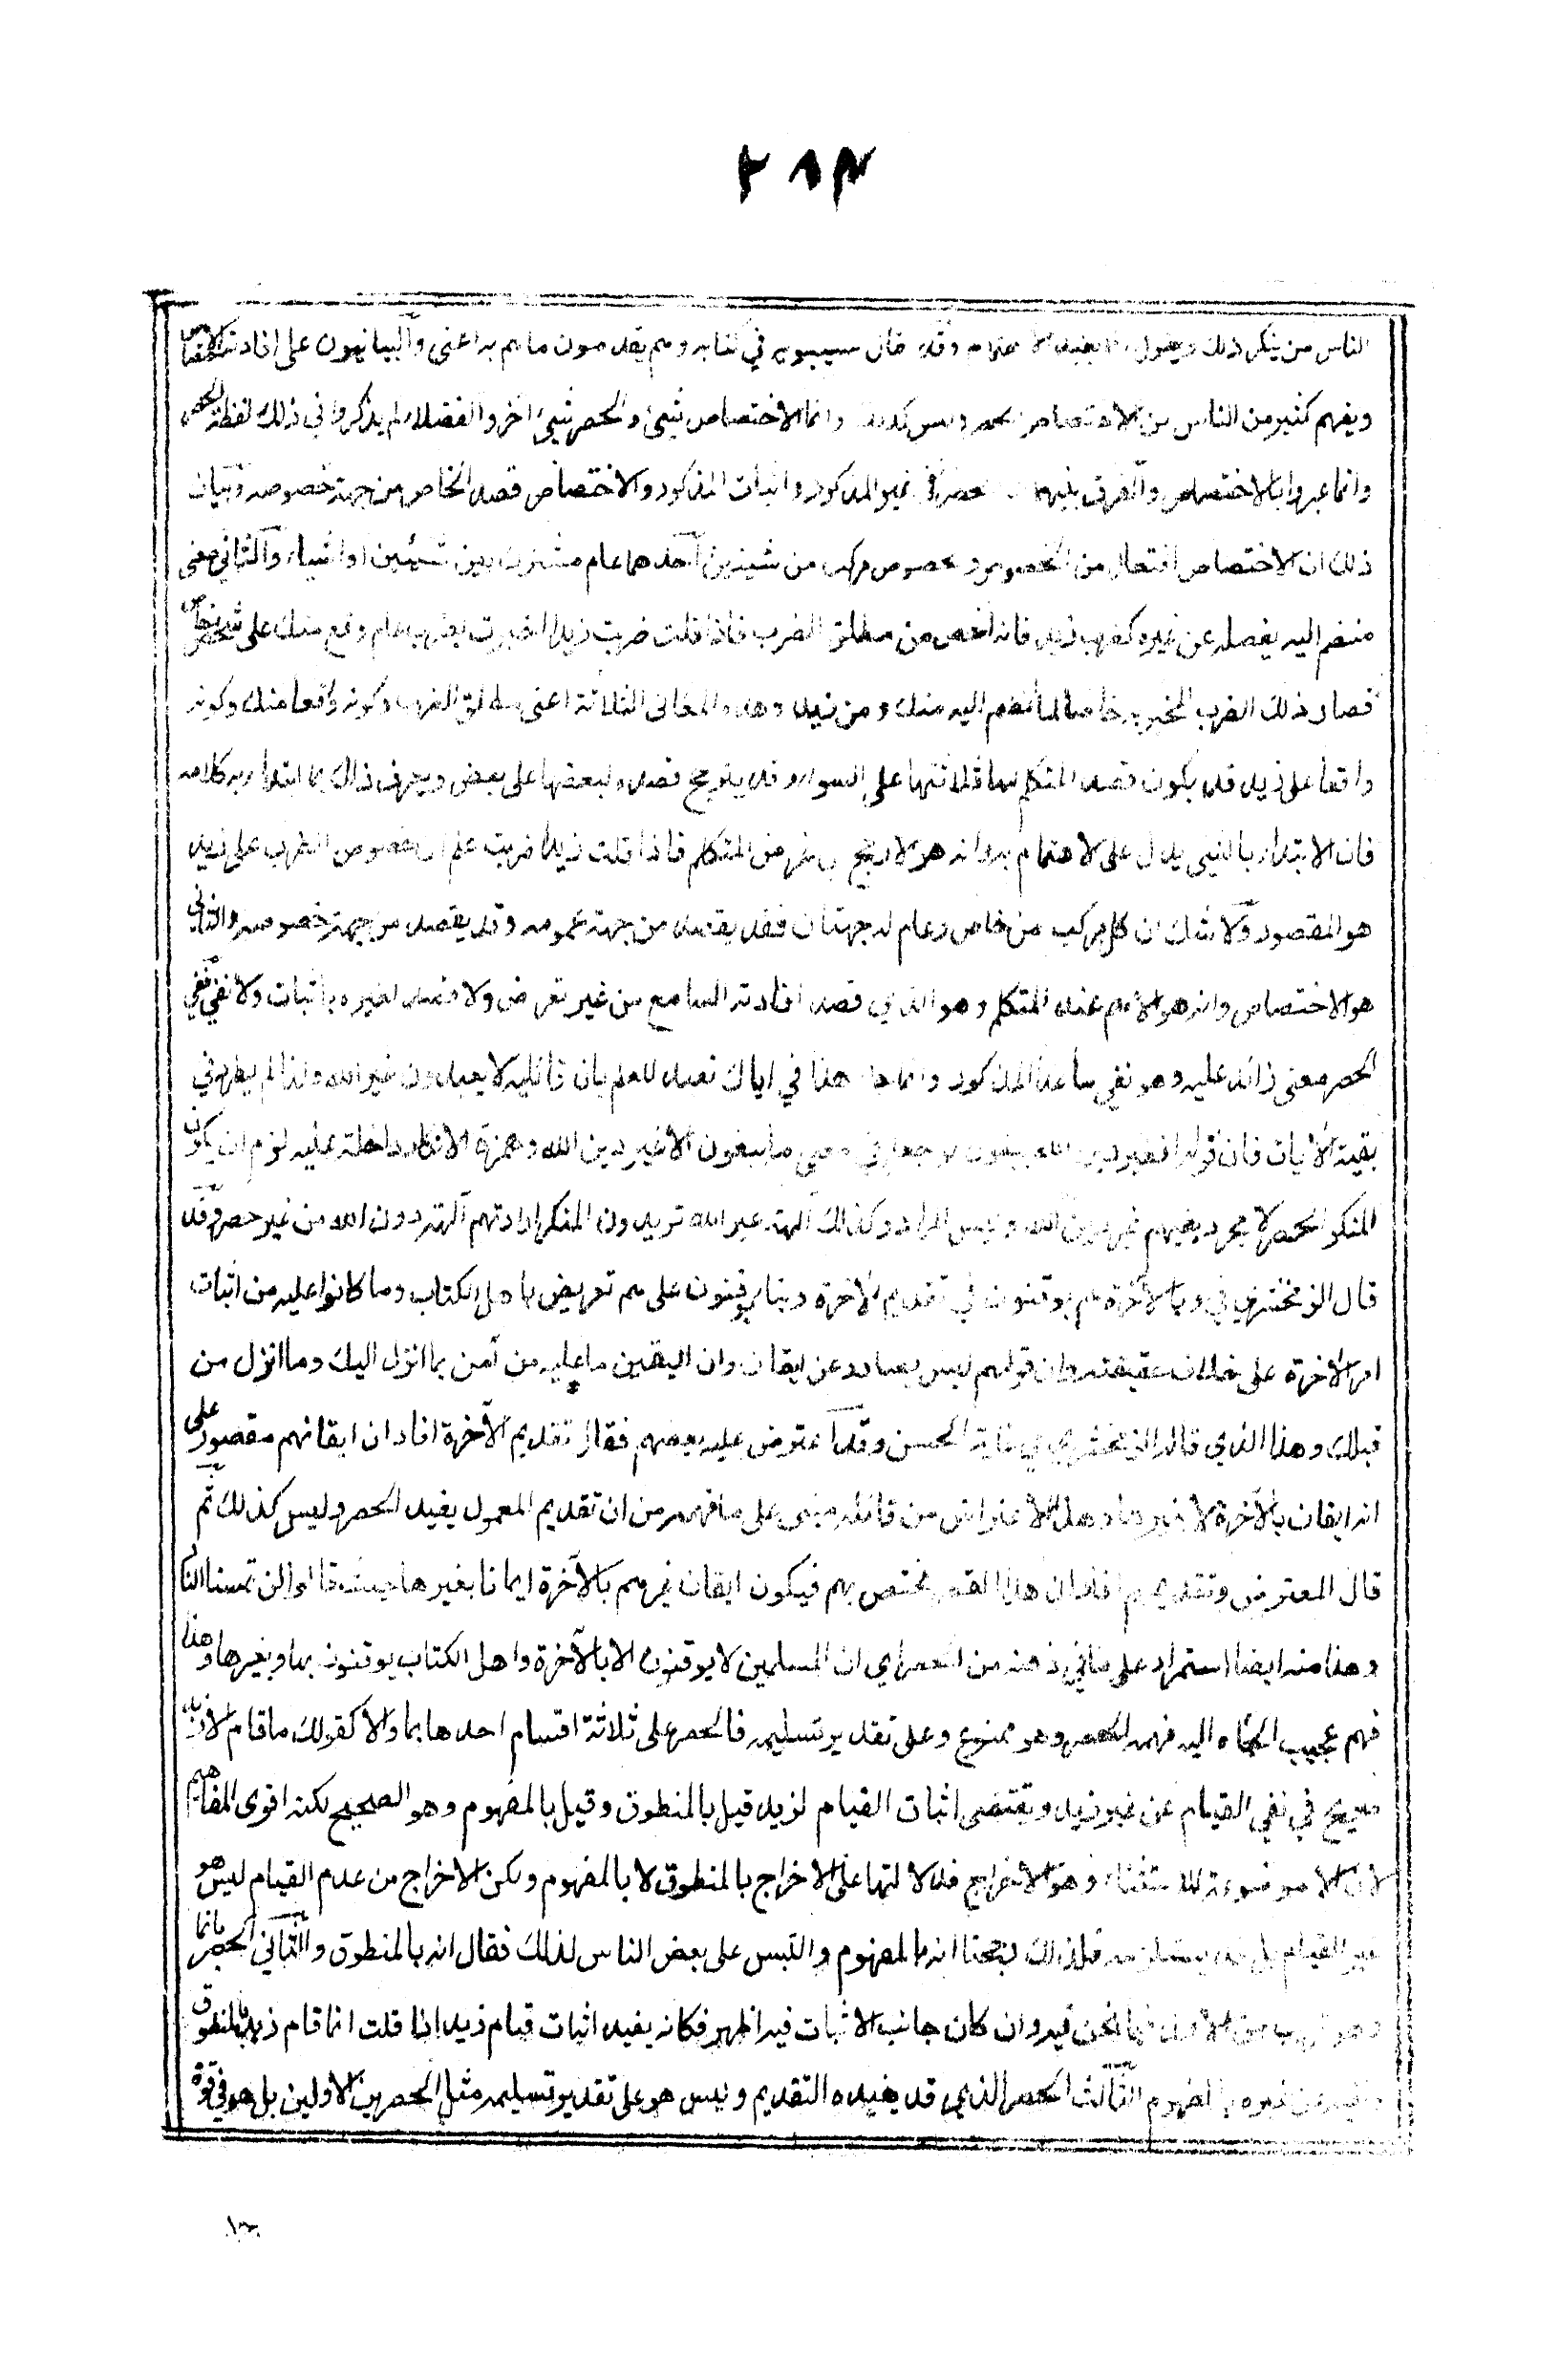 ٢٨٣
الناس من ينكر ذلك ويقول انما يفيد الاهتمام وقد قال سيبويه في كتابه وهم يقدمون ما هم به اعنى والبيانيون على افادته الاختصاص
ويفهم كثير من الناس من الاختصاص الحصر وليس كذلك وانما الاختصاص شيئ والحصر شيئ اخر والفضلاء لم يذكروا في ذلك لفظة الحصر
وانما عبروا بالاختصاص والفرق بينهما ان الحصر نفي غير المذكور واثبات المذكور والاختصاص قصد الخاص من جهة خصوصه وبيان
ذلك ان الاختصاص افتعال من الخصوص والخصوص مركب من شيئين احدهما عام مشترك بين شيئين او اشياء والثاني معنى
منضم اليه يفصله عن غيره كضرب زيد فانه اخص من مطلق الضرب فاذا قلت ضربت زيدا اخبرت بضرب عام وقع منك على شخص خاص
فصار ذلك الضرب المخبر به خاصا لما انضم اليه منك ومن زيد وهذه المعاني الثلاثة اعنى مطلق الضرب وكونه واقعا منك وكونه
واقعا على زيد قد يكون قصد المتكلم بها ثلاثتها على السواء وقد يترجح قصده لبعضها على بعض ويعرف ذلك بما ابتدأ به كلامه
فان الابتداء بالشيئ يدل على الاهتمام به وانه هو الارجح في غرض المتكلم فاذا قلت زيدا ضربت علم ان خصوص الضرب على زيد
هو المقصود ولا شك ان كل مركب من خاص وعام له جهتان فقد يقصد من جهة عمومه وقد يقصد من جهة خصوصه والثاني
هو الاختصاص وانه هو الاهم عند المتكلم وهو الذي قصد افادته السامع من غير تعرض ولا قصد لغيره باثبات ولا نفي ففي
الحصر معنى زائد عليه وهو نفي ما عدا المذكور وانما جاء هذا في اياك نعبد للعلم بان قائليه لا يعبدون غير الله ولذا لم يطرد في
بقية الايات فان قوله افغير دين الله يبغون لو جعل في معنى ما يبغون الا غير دين الله وهمزة الانكار داخلة عليه لزم ان يكون
المنكر الحصر لا مجرد بغيهم غير دين الله وليس المراد وكذلك آلهة غير الله تريدون المنكر ارادتهم آلهة دون الله من غير حصر وقد
قال الزمخشري في وبالآخرة هم يوقنون في تقديم الآخرة وبناء يوقنون على هم تعريض باهل الكتاب وما كانوا عليه من اثبات
امر الآخرة على خلاف حقيقته وان قولهم ليس بصادر عن ايقان وان اليقين ما عليه من آمن بما انزل اليك وما انزل من
قبلك وهذا الذي قاله الزمخشري في غاية الحسن وقد اعترض عليه بعضهم فقال تقديم الآخرة افاد ان ايقانهم مقصور على
انه ايقان بالآخرة لا بغيرها وهذا الاعتراض من قائله مبني على ما فهمه من ان تقديم المعمول يفيد الحصر وليس كذلك ثم
قال المعترض وتقديم هم افاد ان هذا القصر مختص بهم فيكون ايقان غيرهم بالآخرة ايمانا بغيرها حيث قالوا لن تمسنا النار
وهذا منه ايضا استمرار على ما في ذهنه من الحصر اي ان المسلمين لا يوقنون الا بالآخرة واهل الكتاب يوقنون بها وبغيرها وهذا
فهم عجيب الجاه اليه فهمه الحصر وهو ممنوع وعلى تقدير تسليمه فالحصر على ثلاثة اقسام احدها بما والا كقولك ما قام الا زيد
صريح في نفي القيام عن غير زيد ويقتضي اثبات القيام لزيد قيل بالمنطوق وقيل بالمفهوم وهو الصحيح لكنه اقوى المفاهيم
لان الا موضوعة للاستثناء وهو الاخراج فدلالتها على الاخراج بالمنطوق لا بالمفهوم ولكن الاخراج من عدم القيام ليس هو
عين القيام بل قد يستلزمه فلذلك رجحنا انه بالمفهوم والتبس على بعض الناس لذلك فقال انه بالمنطوق والثاني الحصر بانما
وهو قريب من الاول فيما نحن فيه وان كان جانب الاثبات فيه اظهر فكانه يفيد اثبات قيام زيد اذا قلت انما قام زيد بالمنطوق
ونفيه عن غيره بالمفهوم الثالث الحصر الذي قد يفيده التقديم وليس هو على تقدير تسليمه مثل الحصرين الاولين بل هو في قوة